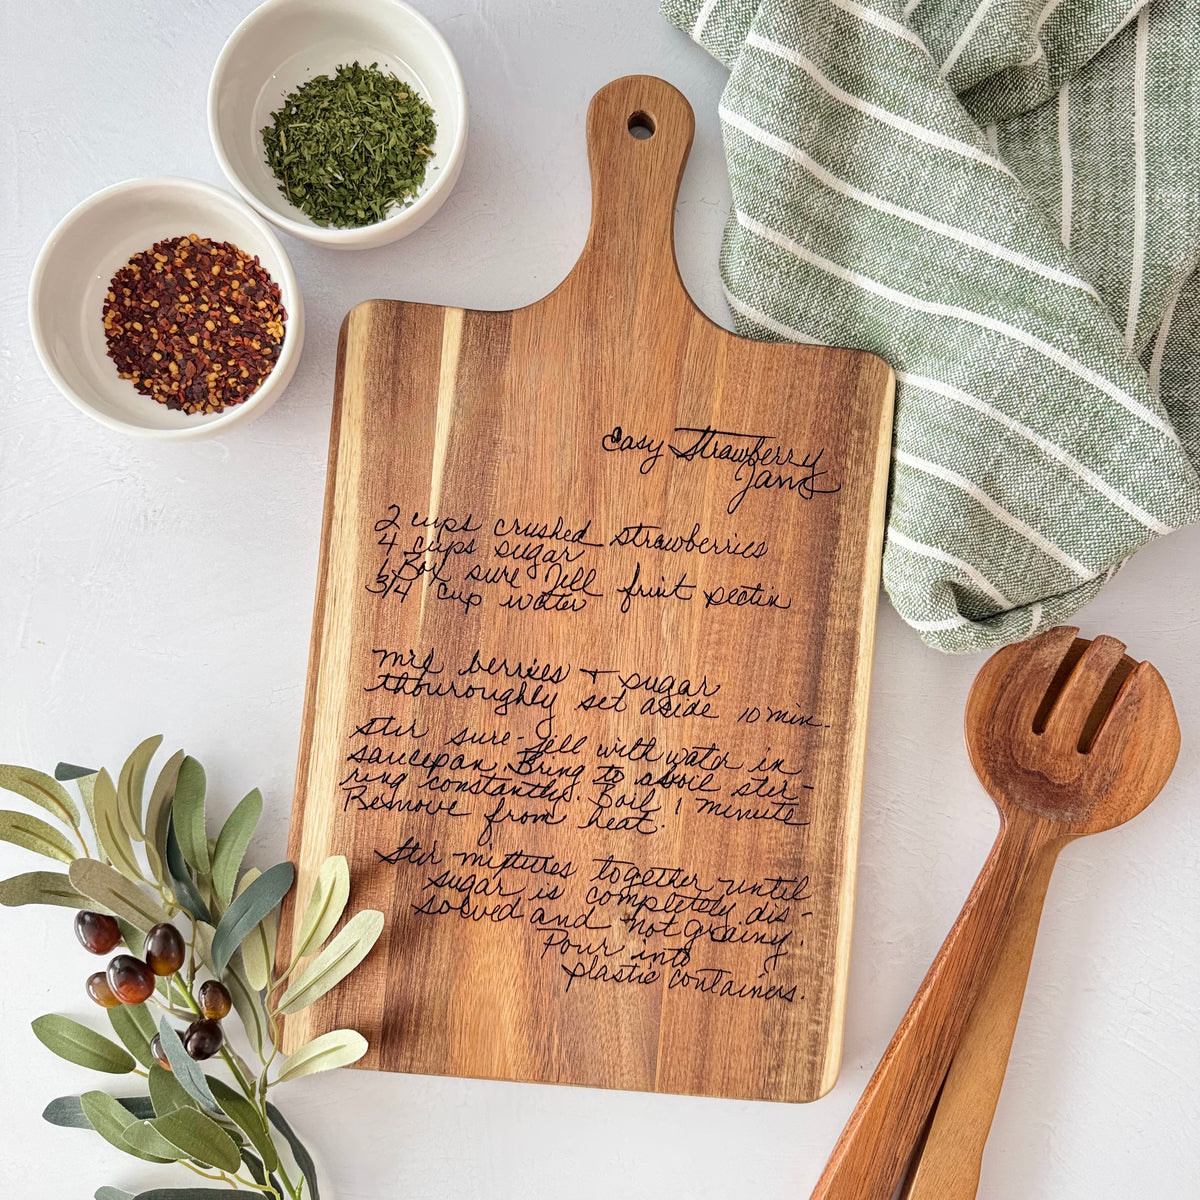 Easy Strawberry
Jam
2 cups crushed strawberries
4 cups sugar
1 Box sure Jell fruit pectin
3/4 cup water
mix berries + sugar
thouroughly set aside 10 min-
Stir sure-Jell with water in
saucepan. Bring to a boil stir-
ring constantly. Boil 1 minute
Remove from heat.
Stir mixtures together until
sugar is completely dis-
solved and not grainy.
Pour into
plastic containers.